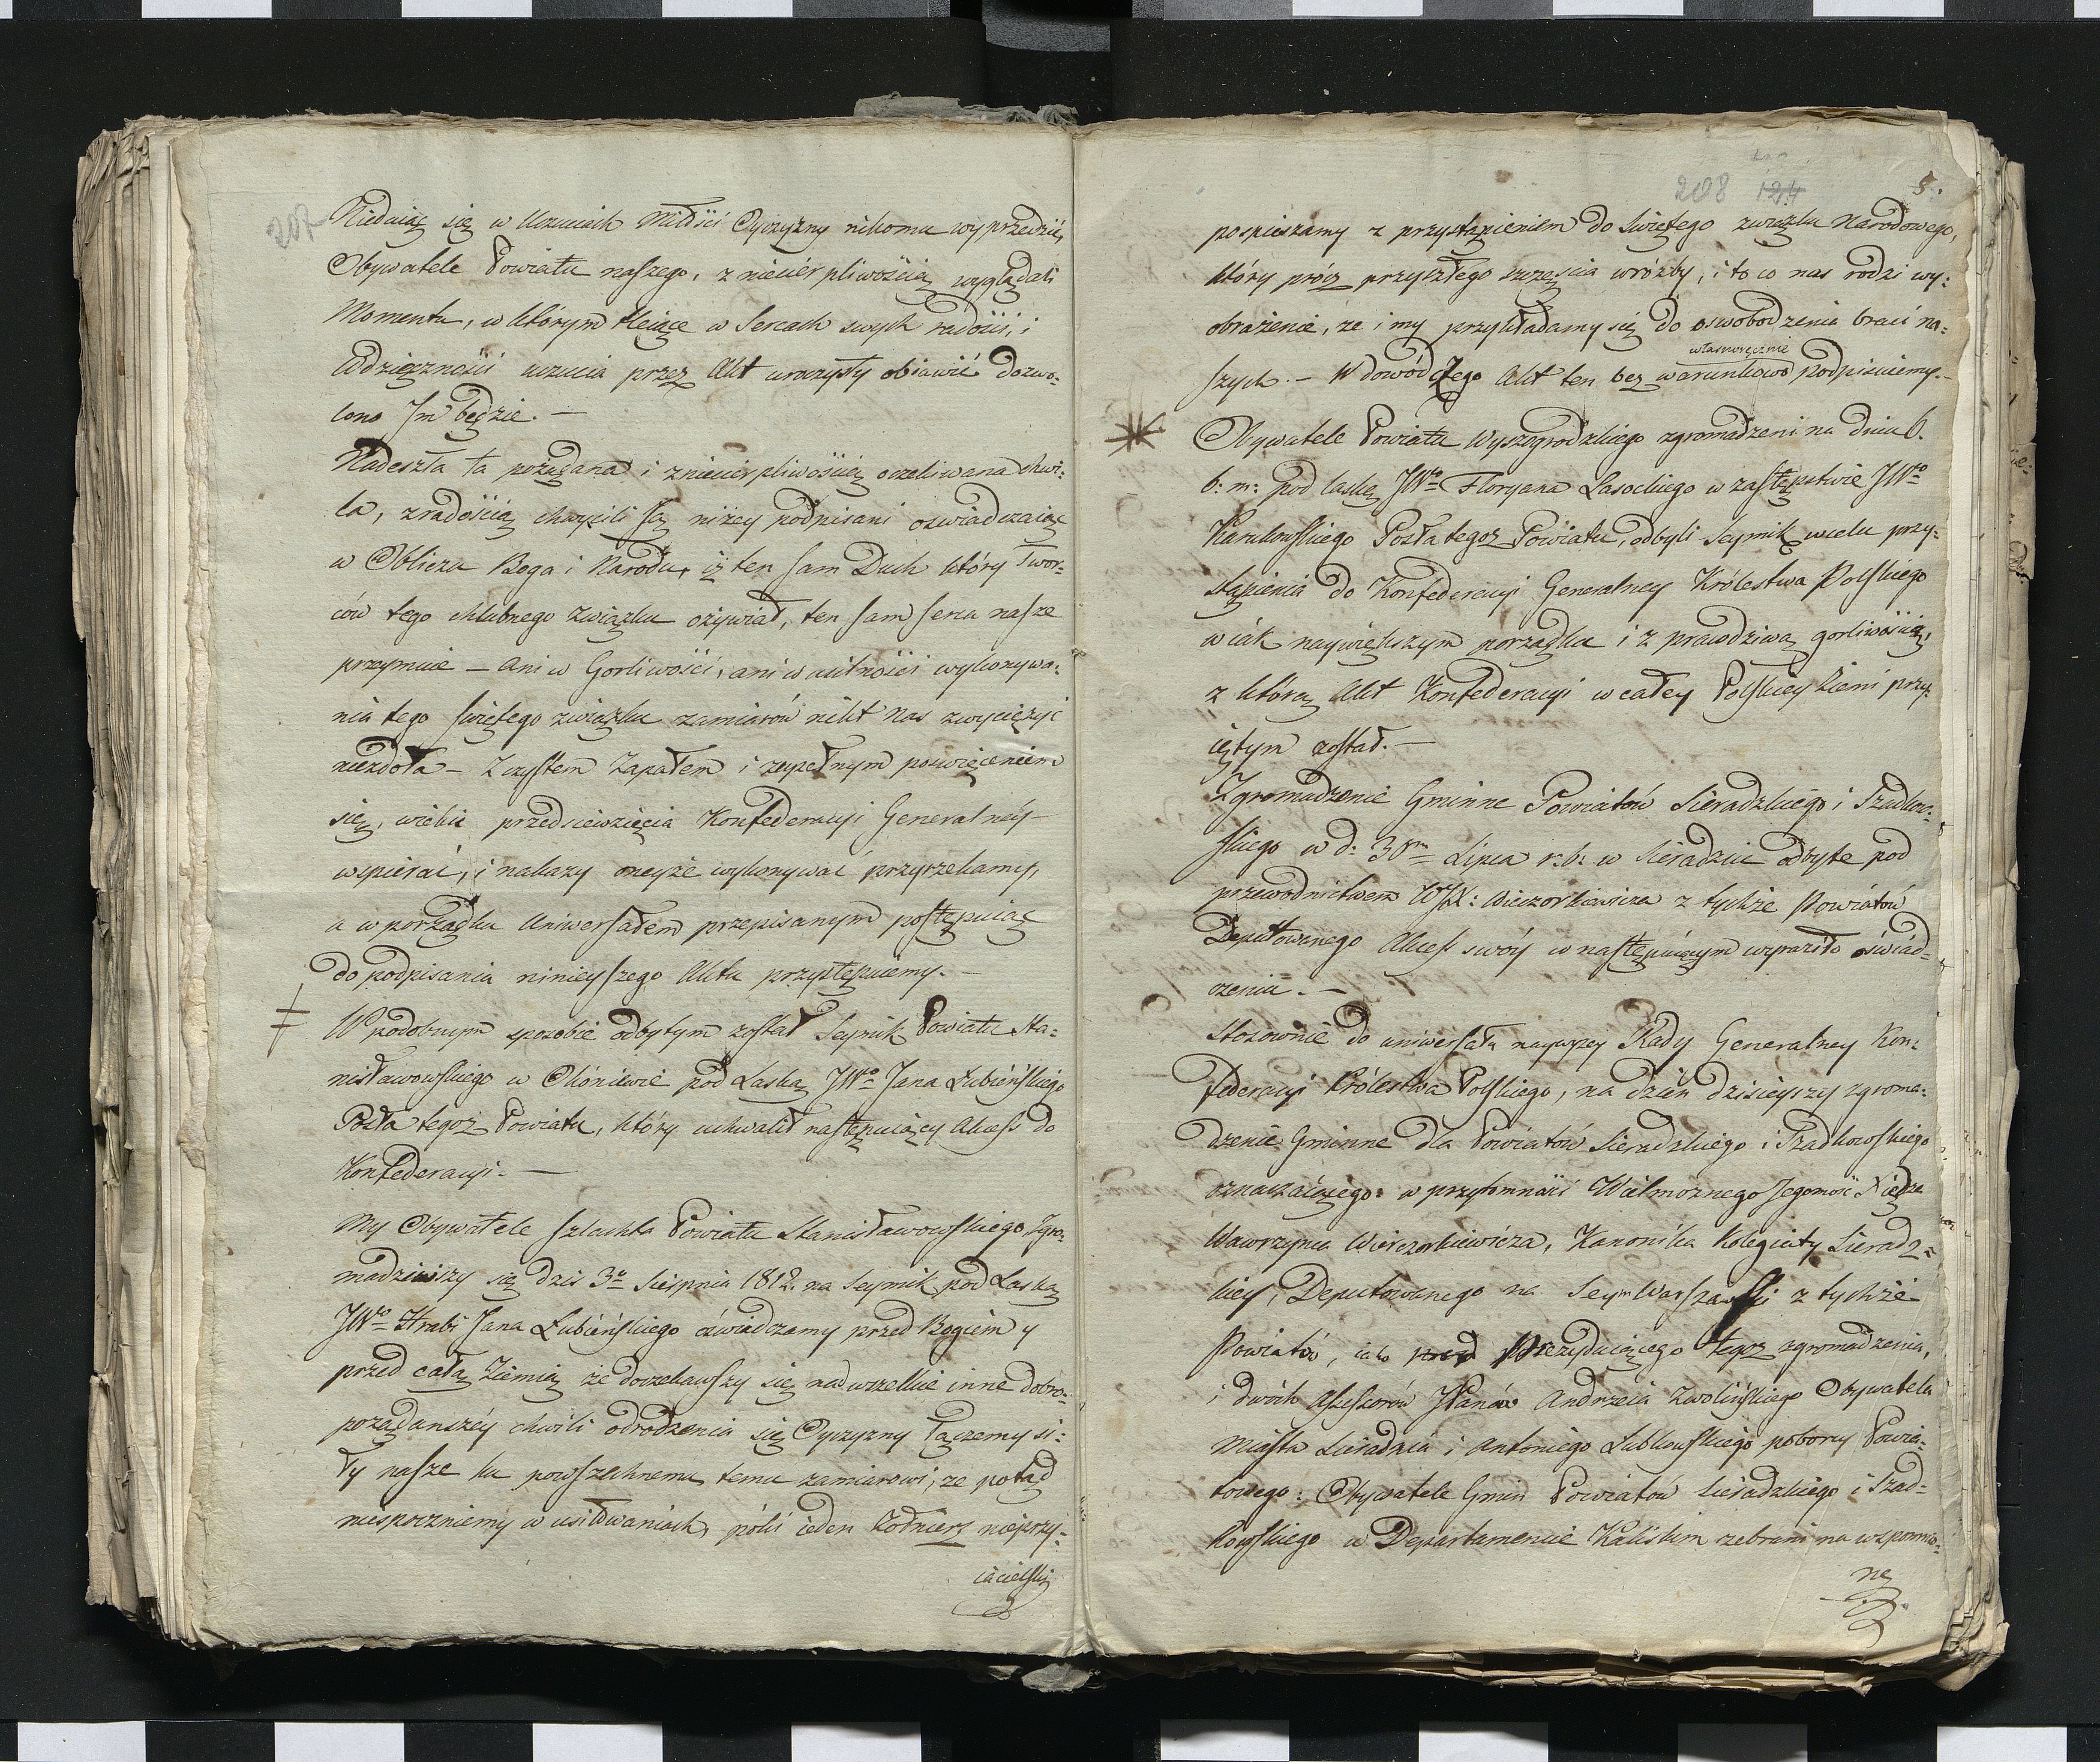 207
Niedaiąc się w uczuciach miłości Oyczyzny nikomu wyprzedzić,
Obywatele Powiatu naszego, z niecierpliwością wyglądali
Momentu, w którym tleiące w Sercach swych radości, i
wdzięczności uczucia przez Akt uroczysty obiawić dozwo-
lono Im będzie. —
Nadeszła ta pożądana i z niecierpliwością oczekiwana chwi-
la, z radością chwycili się niżey podpisani oświadczaiąc
w Obliczu Boga i Narodu, iż ten sam Duch który Twor-
ców tego chlubnego związku ożywiał, ten sam serca nasze
przeymuie — Ani w Gorliwości, ani w usilności wykonywa-
nia tego świętego związku zamiarów nikt nas zwyciężyć
niezdoła — Z czystem Zapałem i zupełnym poświęceniem
się, wielkie przedsiewzięcia Konfederacyi Generalnéy
wspierać, i nakazy oneyże wykonywać przyrzekamy,
a w porządku Uniwersałem przepisanym postępuiąc
do podpisania ninieyszego Aktu przystępuiemy. —
W podobnym sposobie odbytym został Seymik Powiatu Sta-
nisławowskiego w Okóniewie pod Laską JWo Jana Łubieńskiego
Posła tegoż Powiatu, który uchwalił następuiący Akces do
Konfederacyi. —
My Obywatele szlachta Powiatu Stanisławowskiego Zgro-
madziwszy się dziś 3o Sierpnia 1812. na Seymik pod Laską
JWo Hrabi Jana Łubieńskiego oświadczamy przed Bogiem y
przed całą Ziemią że doczekawszy się nad wszelkie inne dobro
pożądanszéy chwili odrodzenia się Oyczyzny łączemy si-
ły nasze ku powszechnemu temu zamiarowi, że potąd
niespoczniemy w usiłowaniach, póki ieden Żołnierz nieprzy-
iacielski
208 124 5.
pospieszamy z przystąpieniem do Świętego związku Narodowego,
który prócz przyszłego szczęścia wróżby, i to w nas rodzi wy-
obrażenie, że i my przykładamy się do oswobodzenia braci na-
własnoręcznie
szych. — W dowód czego Akt ten bez warunkowo podpisuiemy. —
Obywatele Powiatu Wyszogrodzkiego zgromadzeni na dniu 6.
b: m: pod laską JWo Floryana Lasockiego w zastępstwie JWo
Karukowskiego Posła tegoż Powiatu, odbyli Seymik w celu przy-
stąpienia do Konfederacyi Generalney Królestwa Polskiego
w iak naywiększym porządku i z prawdziwą gorliwością,
z którą Akt Konfederacyi w całey Polskiey Ziemi przy-
iętym został. —
Zgromadzenie Gminne Powiatów Sieradzkiego i Szadkow-
skiego w d: 30m Lipca r: b: w Sieradziu odbyte pod
przewodnictwem WJX: Wieczorkiewicza z tychże Powiatów
Deputowanego Akces swóy w następuiącym wyraziło oświad-
czeniu. —
Stosownie do uniwersału naywyższey Rady Generalney Kon-
federacyi Królestwa Polskiego, na dzień dzisieyszy zgroma-
dzenie Gminne dla Powiatów Sieradzkiego i Szadkowskiego
oznaczaiącego: w przytomności Wielmożnego Jegomość Xiędza
Wawrzyńca Wieczorkiewicza, Kanonika Kolegiaty Sieradz-
kiey, Deputowanego na Seym Warszawski z tychże
Powiatów, iako Prezyduiącego tegoż zgromadzenia,
i dwóch Assessorów JPanów Andrzeia Zwolińskiego Obywatela
Miasta Sieradzia i Antoniego Lubkowskiego poborcy Powia-
towego: Obywatele Gmin Powiatów Sieradzkiego i Szad-
kowskiego w Departamencie Kaliskim zebrani na wspomnio-
ne